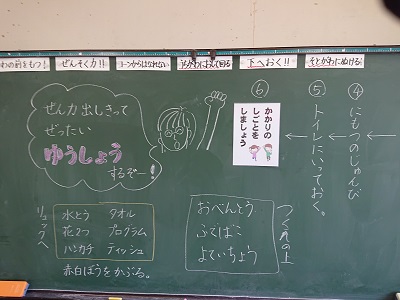 わの前をもつ!
ぜんそく力!!
コーンからはなれない
下へおく!!
そとがわにぬける!
ぜん力出しきって
ぜったい
ゆうしょう
するぞー!
④にもつのじゅんび
⑤トイレにいっておく。
⑥
かかりの
しごとを
しましょう
つくえの上
おべんとう
ふでばこ
よていちょう
リュックへ
水とう タオル
花2つ プログラム
ハンカチ ティッシュ
赤白ぼうをかぶる。